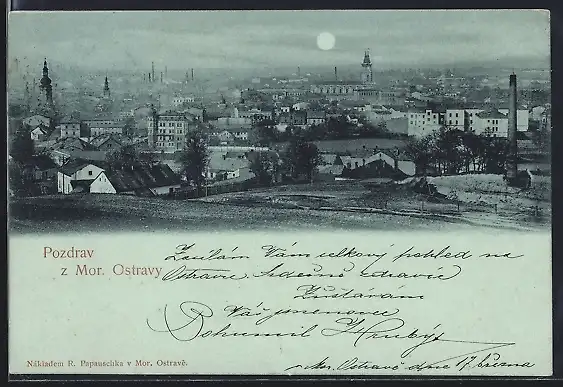 Pozdrav
z Mor. Ostravy
Zasílám Vám celkový pohled na
Ostravu. Srdečně zdravíc
Zůstávám
Váš jmenovec
Bohumil Hrubý
Mor. Ostrava dne 17 března
Nákladem R. Papauschka v Mor. Ostravě.